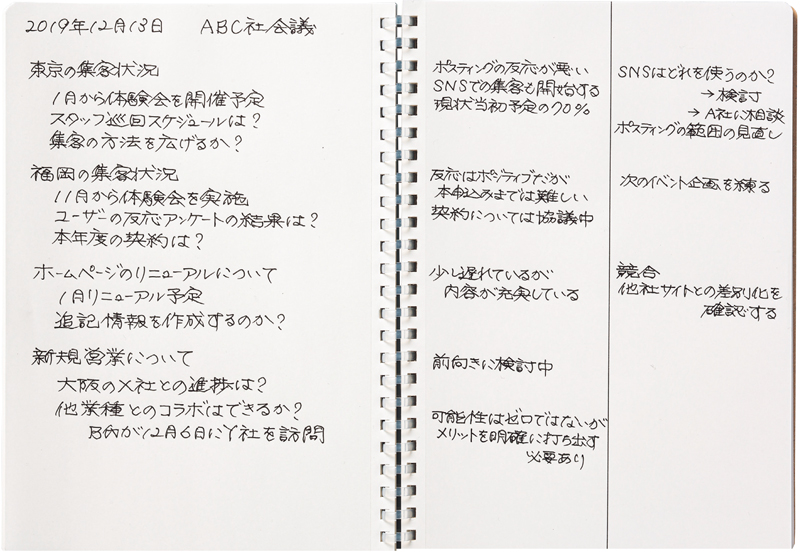 2019年12月13日　ABC社会議
東京の集客状況
1月から体験会を開催予定
スタッフ巡回スケジュールは？
集客の方法を広げるか？
福岡の集客状況
11月から体験会を実施
ユーザーの反応アンケートの結果は？
本年度の契約は？
ホームページのリニューアルについて
1月リニューアル予定
追記情報を作成するのか？
新規営業について
大阪のX社との進捗は？
他業種とのコラボはできるか？
B氏が12月6日にY社を訪問
ポスティングの反応が悪い
SNSでの集客も開始する
現状当初予定の70%
反応はポジティブだが
本申込みまでは難しい
契約については協議中
少し遅れているが
内容が充実している
前向きに検討中
可能性はゼロではないが
メリットを明確に打ち出す
必要あり
SNSはどれを使うのか？
→検討
→A社に相談
ポスティングの範囲の見直し
次のイベント企画を練る
競合
他社サイトとの差別化を
確認する